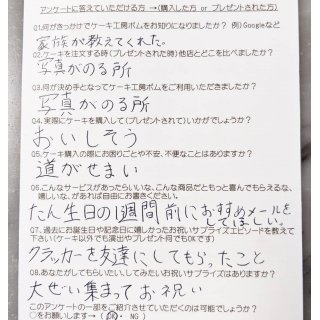 アンケートに答えていただける方 →(購入した方 or プレゼントされた方)
Q1.何がきっかけでケーキ工房ボムをお知りになりましたか? 例)Googleなど
家族が教えてくれた。
Q2.ケーキを注文する時(プレゼントされた時)他店とどこを比べましたか?
写真がのる所
Q3.何が決め手となってケーキ工房ボムをご利用いただきましたか?
写真がのる所
Q4.実際にケーキを購入して(プレゼントされて)いかがでしょうか?
おいしそう
Q5.ケーキ購入の際にお困りごとや不安、不便なことはありますか?
道がせまい
Q6.こんなサービスがあったらいいな、こんな商品だともっと喜んでもらえるな、
嬉しいな、があれば自由にお書きください。
たん生日の1週間前におすすめメールを
してほしい。
Q7.過去にお誕生日や記念日に嬉しかったお祝いサプライズエピソードを教えて
下さい(ケーキ以外でも演出やプレゼント何でもOKです)
クラッカーを友達にしてもらったこと
Q8.あなたがしてもらいたい、してみたいお祝いサプライズはありますか?
大ぜい集まってお祝い
このアンケートの一部をご紹介させていただくのは可能でしょうか?
○をお願いします→ (OK・ NG )